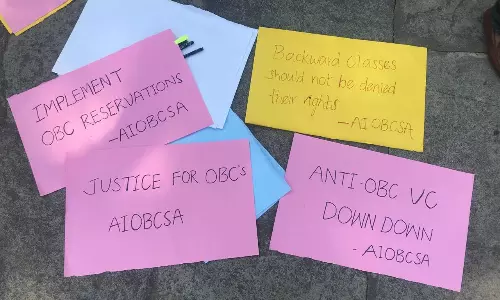 IMPLEMENT
OBC RESERVATIONS
-AIOBCSA
Backward Classes
should not be denied
their rights
-AIOBCSA
JUSTICE FOR OBC's
AIOBCSA
ANTI-OBC VC
DOWN DOWN
- AIOBCSA